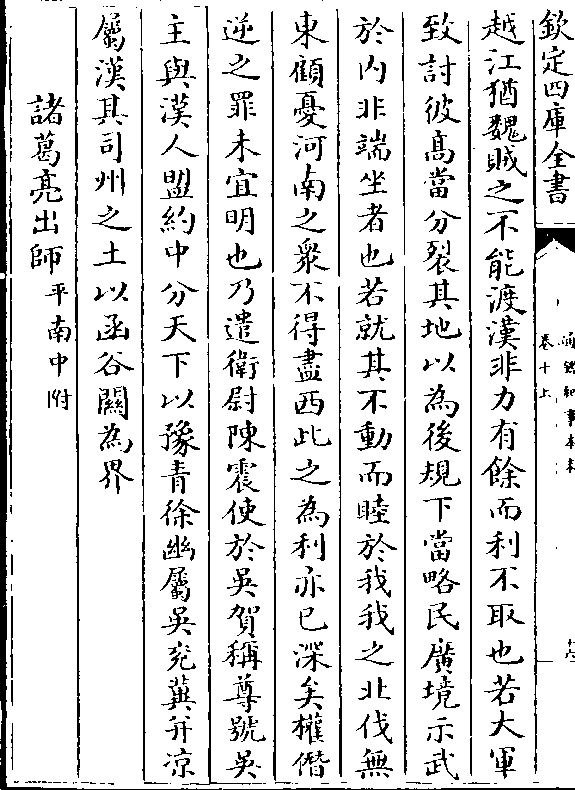 欽定四庫全書
通鑑紀事本末
卷十上
越江猶魏賊之不能渡漢非力有餘而利不取也若大軍
致討彼髙當分裂其地以為後規下當略民廣境示武
於内非端坐者也若就其不動而睦於我我之北伐無
東顧憂河南之衆不得盡西此之為利亦已深矣權僭
逆之罪未宜明也乃遣衛尉陳震使於吳賀稱尊號吳
主與漢人盟約中分天下以豫青徐幽屬吳兖冀并凉
屬漢其司州之土以函谷關為界
諸葛亮出師平南中附